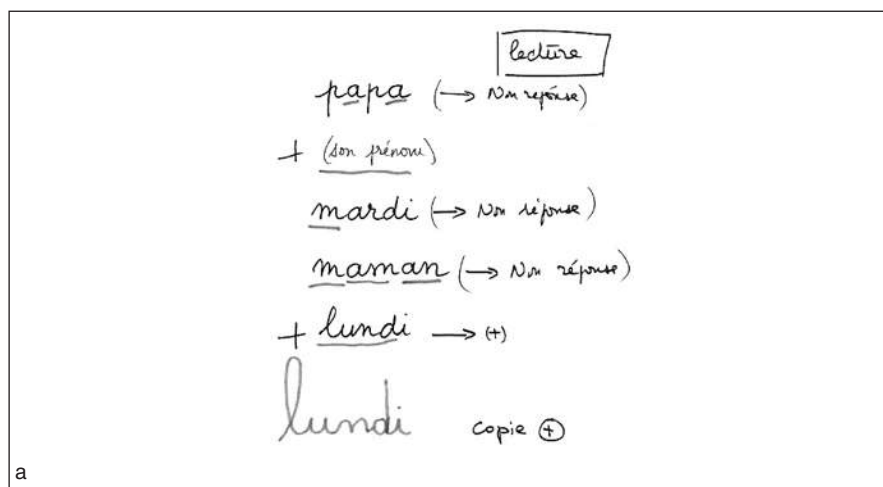 lecture
papa (→ Non réponse)
+ (son prénom)
mardi (→ Non réponse)
maman (→ Non réponse)
+ lundi → (+)
lundi copie (+)
a